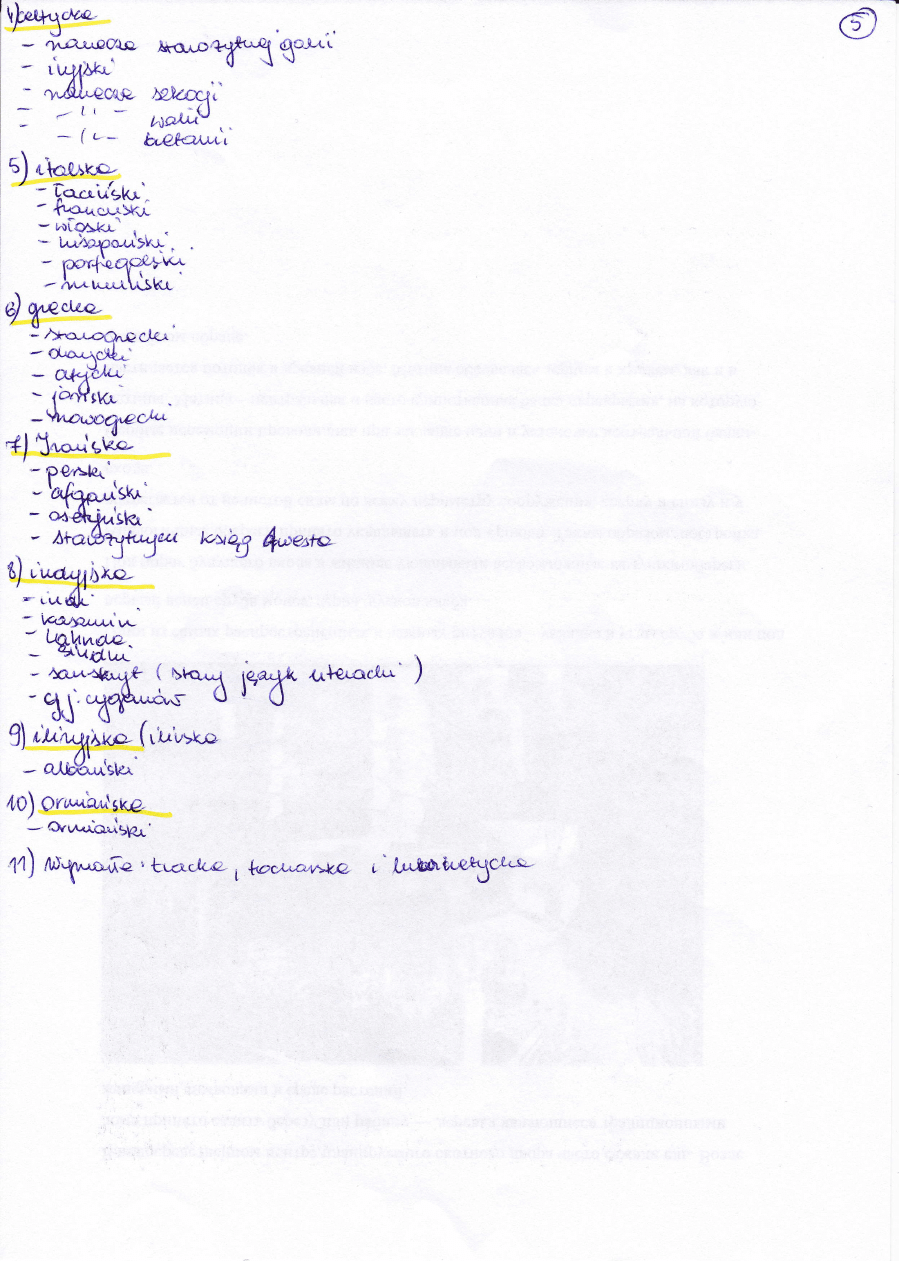 5
4) celtycka
- narzecza starożytnej galii
- iryjski
- narzecza szkocji
- -11- walii
- -11- bretanii
5) italska
- łaciński
- francuski
- włoski
- hiszpański
- portugalski
- rumuński
6) grecka
- starogrecki
- dorycki
- atycki
- joński
- nowogrecki
7) Irańska
- perski
- afgański
- osetyński
- starożytnych ksiąg Awesta
8) indyjska
-
- kaszmiri
-
-
- sanskryt (stary język literacki)
- j. cyganów
9) iliryjska (ilirska
- albański
10) ormiańska
- ormiański
11) Wymarłe: tracka, tocharska i